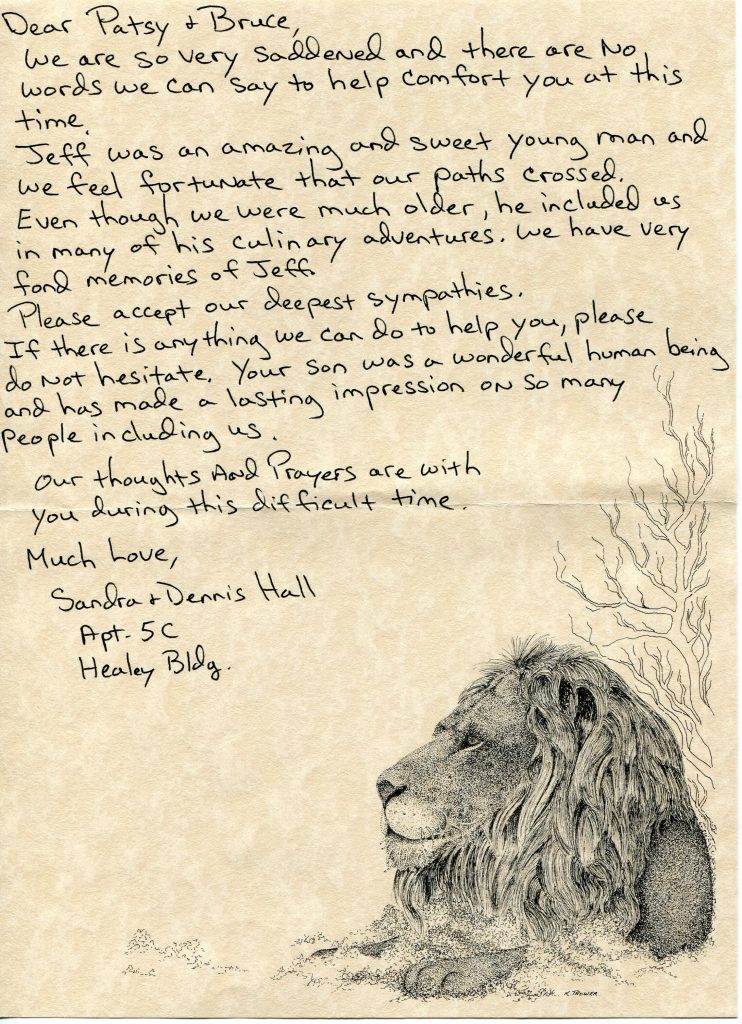 Dear Patsy + Bruce,
We are so very saddened and there are No
words we can say to help comfort you at this
time.
Jeff was an amazing and sweet young man and
we feel fortunate that our paths crossed.
Even though we were much older, he included us
in many of his culinary adventures. We have very
fond memories of Jeff.
Please accept our deepest sympathies.
If there is anything we can do to help you, please
do Not hesitate. Your son was a wonderful human being
and has made a lasting impression on so many
people including us.
Our thoughts And Prayers are with
you during this difficult time.
Much Love,
Sandra + Dennis Hall
Apt. 5C
Healey Bldg.